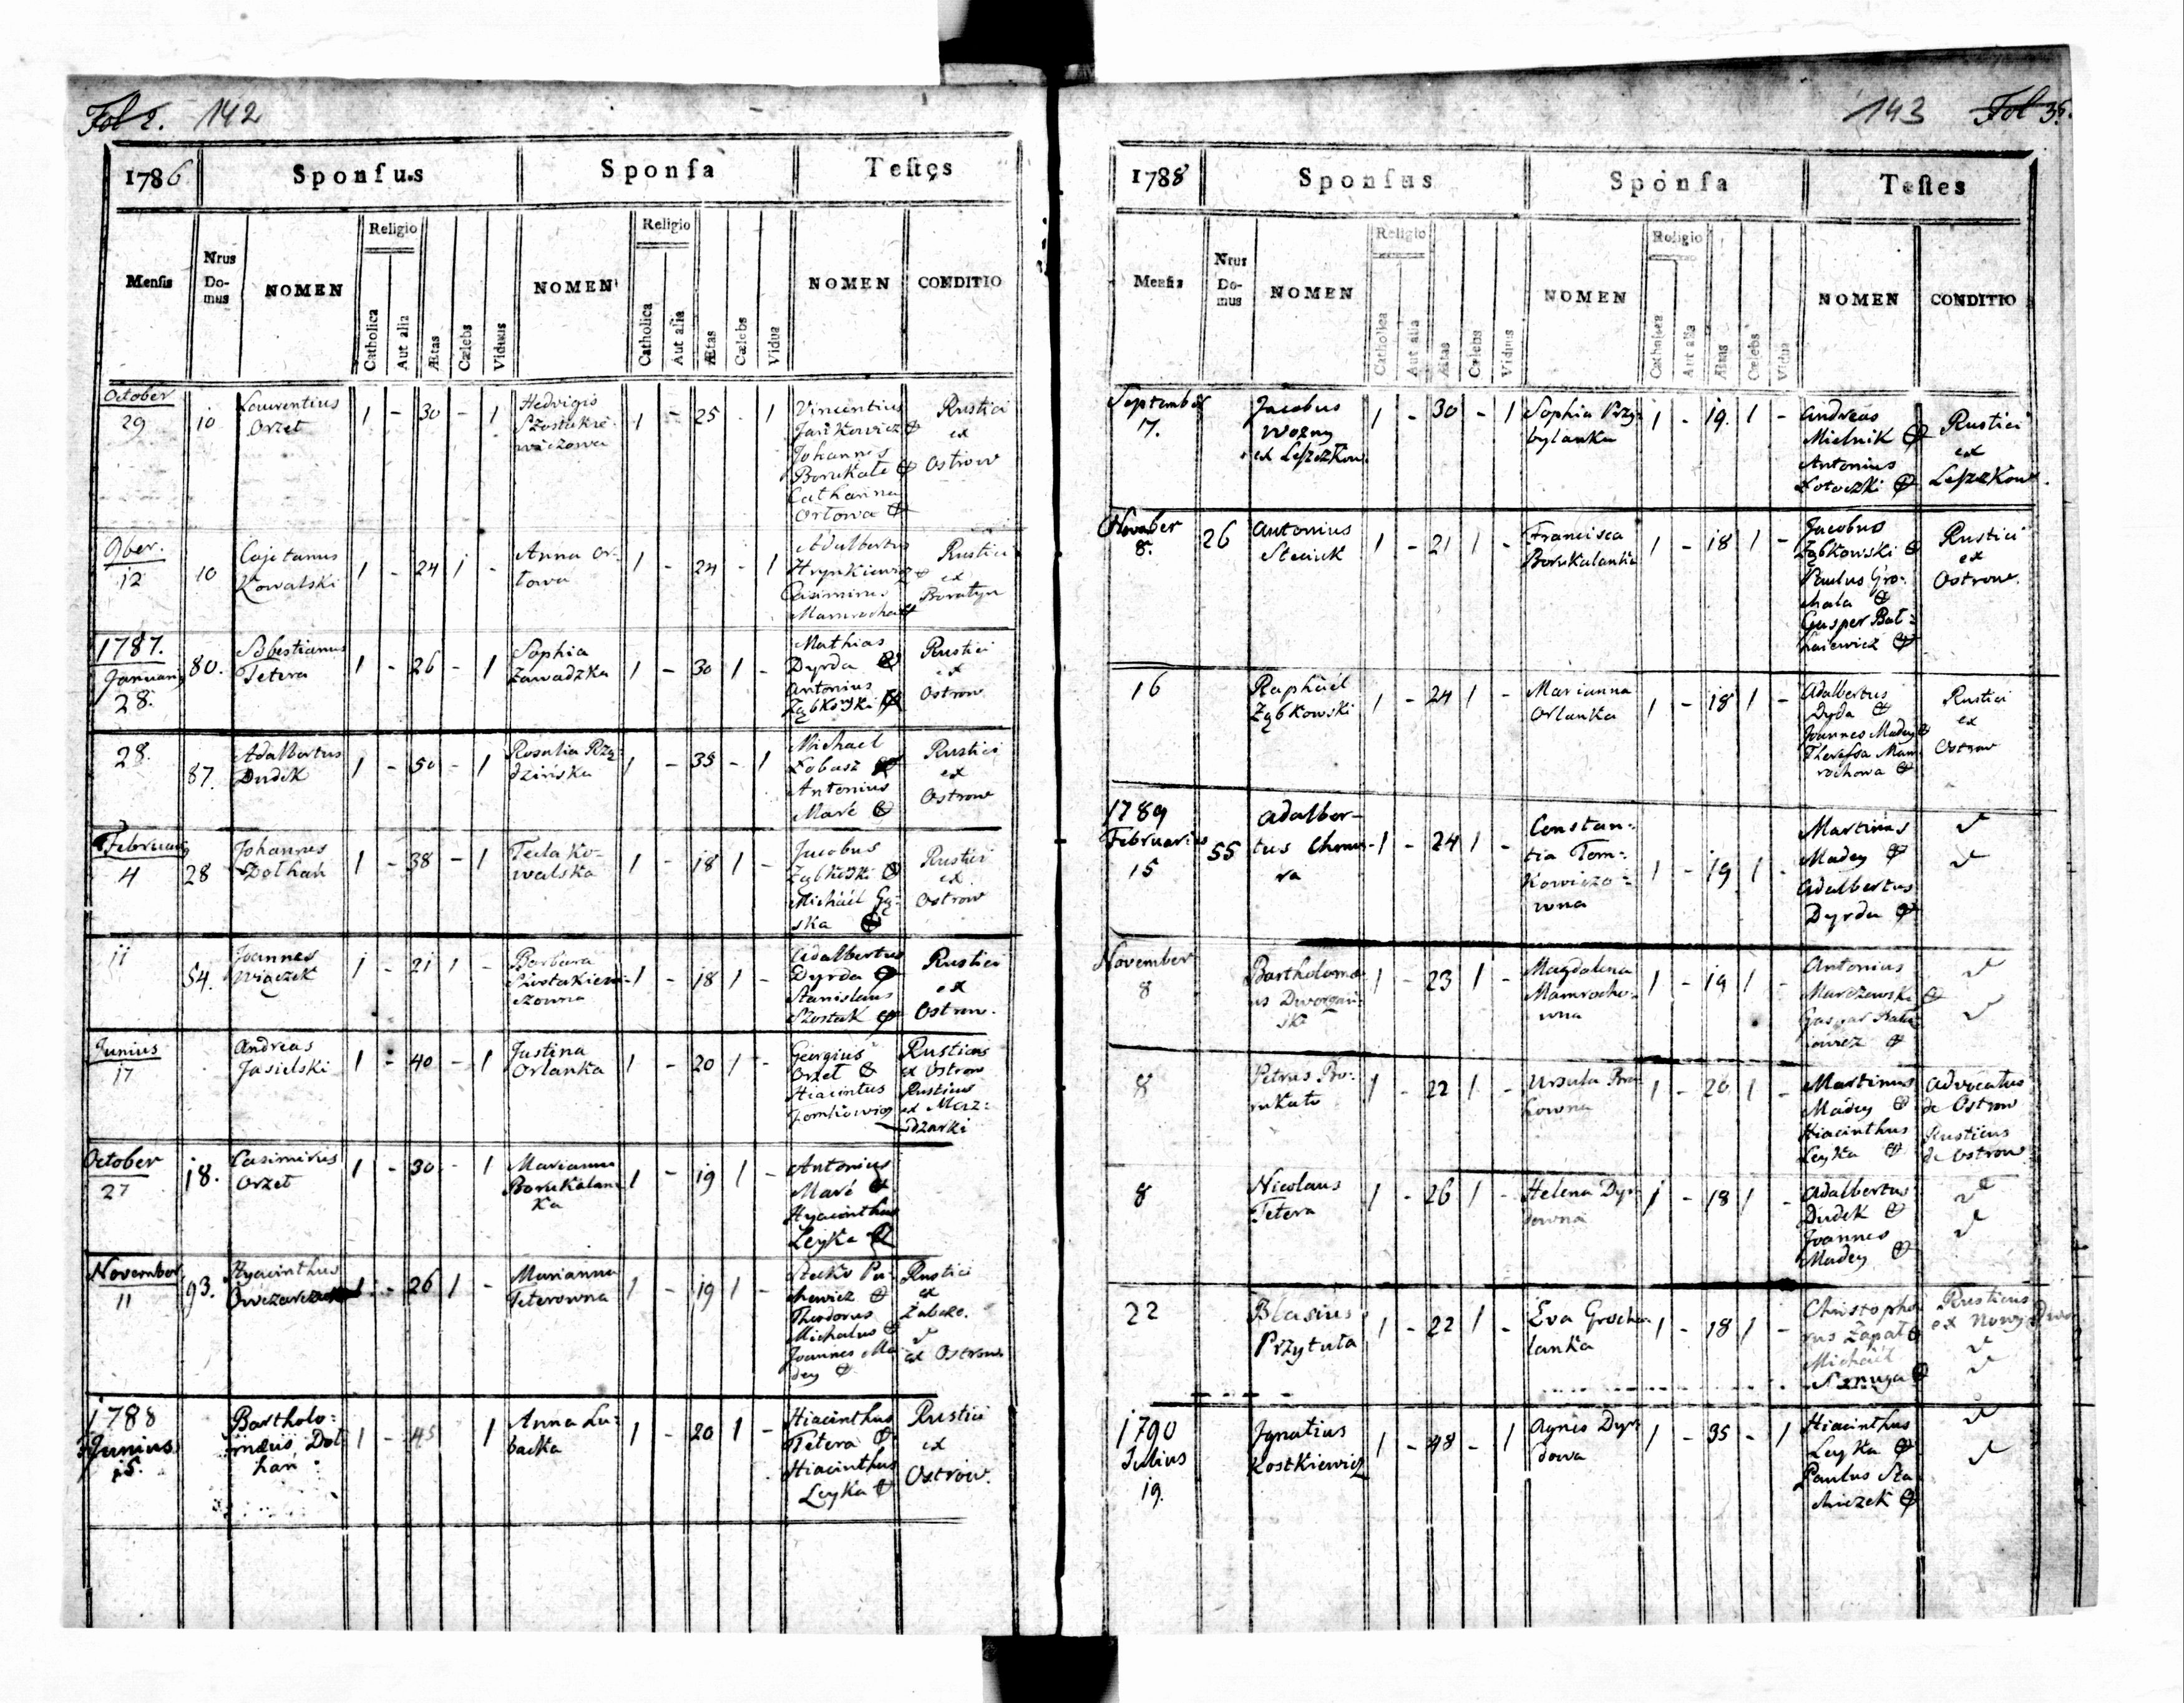 Fol 2. 142
1786 Sponsus Sponsa Testes
Religio Religio
Mensis Nrus Domus NOMEN Catholica Aut alia Ætas Cœlebs Viduus NOMEN Catholica Aut alia Ætas Cœlebs Vidua NOMEN CONDITIO
October
29 10 Laurentius Orzet 1 - 30 - 1 Hedvigis Szostakiewiczowa 1 - 25 - 1 Vincentius Jankowicz Rustici
Johannes Borukało ex
Catharina Orłowa Ostrow
9ber.
12 10 Cajetanus Kowalski 1 - 24 1 - Anna Orłowa 1 - 24 - 1 Adalbertus Hrynkiewicz Rustici
Casimirus Mamrocha ex Boratyn
1787.
Januarij
28. 80. Sebestianus Tetera 1 - 26 - 1 Sophia Zawadzka 1 - 30 1 - Mathias Dyrda Rustici
Antonius Ząbkoski ex Ostrow
28. 87. Adalbertus Dudek 1 - 50 - 1 Rosalia Rządzińska 1 - 35 - 1 Michael Łobasz Rustici
Antonius Maré ex Ostrow
Februarij
4 28 Johannes Dołhan 1 - 38 - 1 Tecla Kowalska 1 - 18 1 - Jacobus Ząbkoski Rustici
Michäel Gąska ex Ostrow
11 54. Joannes Wiączek 1 - 21 1 - Barbara 1 - 18 1 - Adalbertus Dyrda Rustici
Stanislaus Szostak ex Ostrow.
Junius
17 Andreas Jasielski 1 - 40 - 1 Justina Orlanka 1 - 20 1 - Georgius Orzet Rusticus ex Ostrow
Hiacintus Rusticus ex
October
27 18. Casimirus Orzet 1 - 30 - 1 Marianna Borukalanka 1 - 19 1 - Antonius Maré
Hyacinthus Leyka
November
11 93. Hyacinthus 1 - 26 1 - Marianna Teterowna 1 - 19 1 - Rustici
Theodorus Michalus ex
Joannes Madey ex Ostrow
1788
Junius
15. Bartholomæus Dołhan 1 - 45 1 Anna Lubacka 1 - 20 1 - Hiacinthus Tetera Rustici
Hiacinthus Leyka ex Ostrow.
143 Fol 3.
1788 Sponsus Sponsa Testes
Religio Religio
Mensis Nrus Domus NOMEN Catholica Aut alia Ætas Cœlebs Viduus NOMEN Catholica Aut alia Ætas Cœlebs Vidua NOMEN CONDITIO
September
17. Jacobus Wozny ex Leszczkow 1 - 30 - 1 Sophia Przybylanka 1 - 19. 1 - Andreas Mielnik Rustici
Antonius ex Leszczkow.
November
8. 26 Antonius Steciuk 1 - 21 1 - Francisca Borukalanka 1 - 18 1 - Jacobus Ząbkowski Rustici
Paulus Gromala ex
Gasper Ostrow.
16 Raphäel Ząbkowski 1 - 24 1 - Marianna Orlanka 1 - 18 1 - Adalbertus Dyda Rustici
Joannes Madey ex
Theressa Mamrochowa Ostrow
1789
Februarius
15 55 Adalbertus 1 - 24 1 - Constantia Tomkowiczowna 1 - 19 1 - Martinus Madey
Adalbertus Dyrda
November
8 Bartholomæus 1 - 23 1 - Magdalena Mamrochowna 1 - 19 1 - Antonius Marczewski
8 Petrus Borukało 1 - 22 1 - Ursula 1 - 20 1 - Martinus Madey Advocatus de Ostrow
Hiacinthus Leyka Rusticus de Ostrow
8 Nicolaus Tetera 1 - 26 1 - Helena 1 - 18 1 - Adalbertus Dudek
Joannes Madey
22 Blasius Przytuła 1 - 22 1 - Eva 1 - 18 1 - Christophorus Zapał Rusticus ex Nowy Dwor
Michäel
1790
Julius
19. Ignatius Kostkiewicz 1 - 48 - 1 Agnes 1 - 35 - 1 Hiacinthus Leyka
Paulus